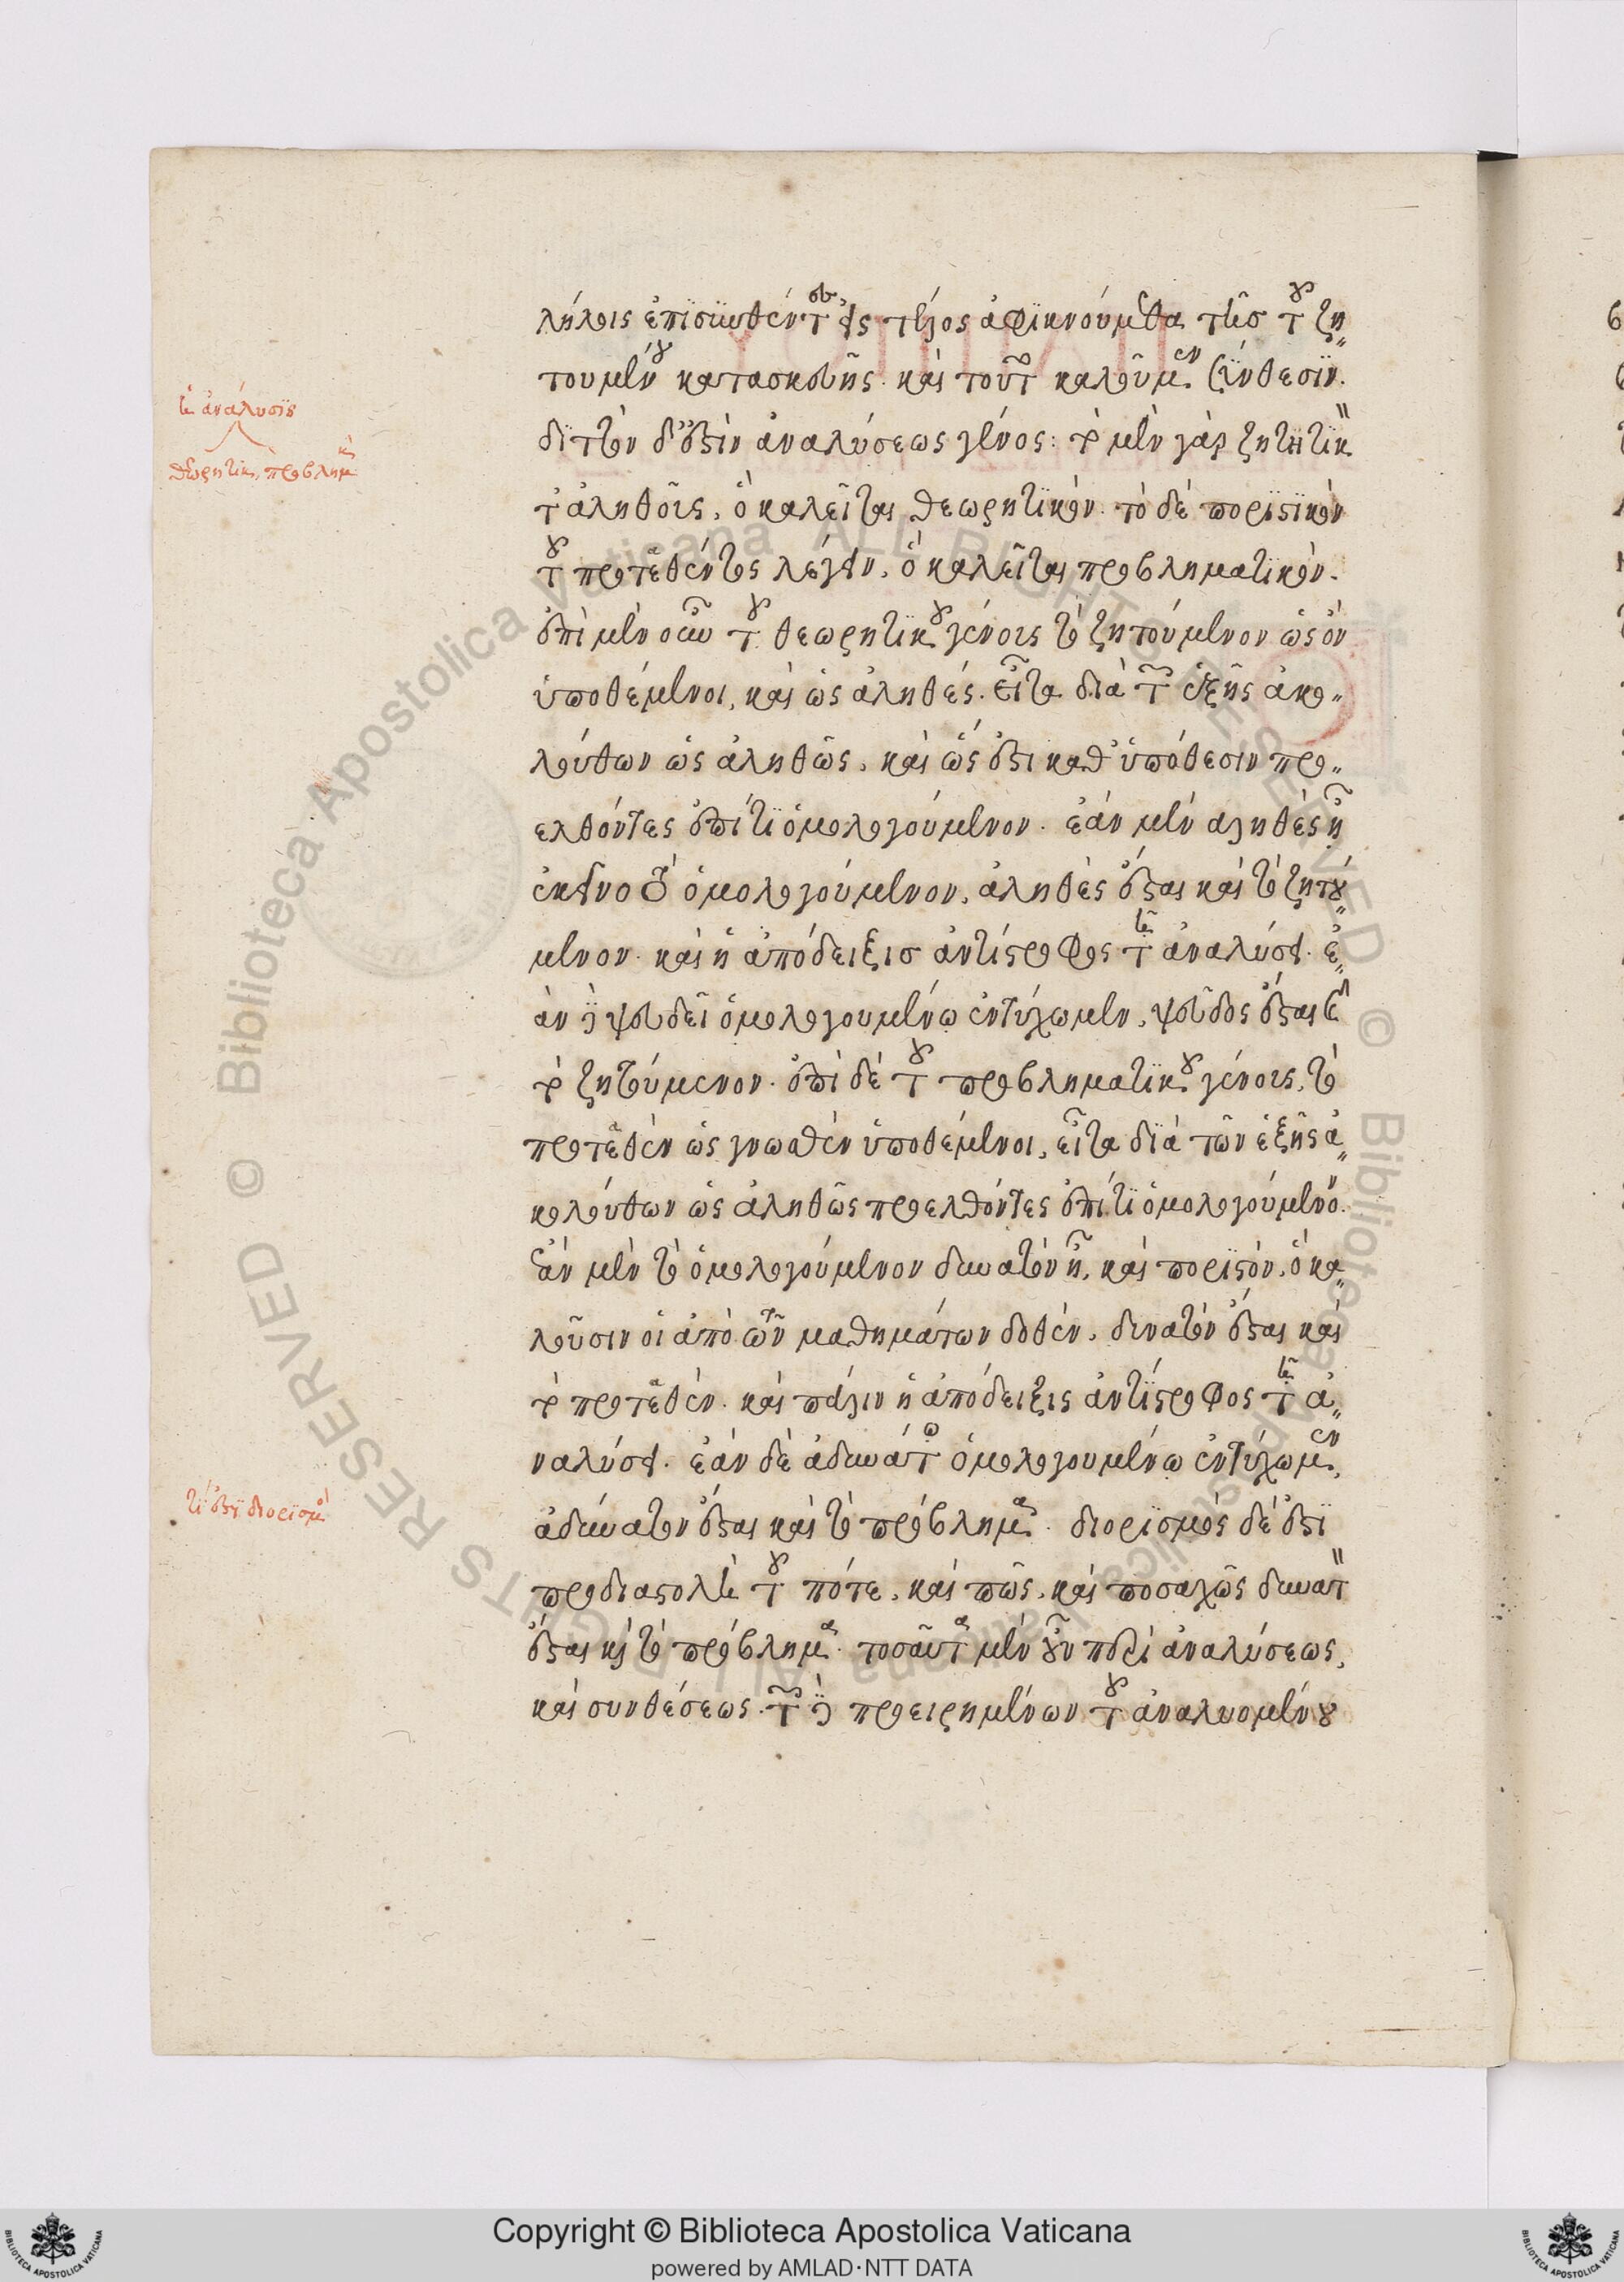 λήλοις ἐπισυνθέντες εἰς τέλος ἀφικνούμεθα τῆς τοῦ ζη
τουμένου κατασκευῆς. καὶ τοῦτο καλοῦμεν σύνθεσιν.
διττὸν δ' ἐστὶν ἀναλύσεως γένος: τὸ μὲν γὰρ ζητητικὸν
τἀληθοῦς, ὃ καλεῖται θεωρητικὸν. τὸ δὲ ποριστικὸν
τοῦ προτεθέντος λέγειν, ὃ καλεῖται προβληματικὸν.
ἐπὶ μὲν οὖν τοῦ θεωρητικοῦ γένους τὸ ζητούμενον ὡς ὂν
ὑποθέμενοι, καὶ ὡς ἀληθές. εἶτα διὰ τῶν ἑξῆς ἀκο
λούθων ὡς ἀληθῶς, καὶ ὡς ἔστι καθ' ὑπόθεσιν προ
ελθόντες ἐπί τι ὁμολογούμενον. ἐὰν μὲν ἀληθὲς ᾖ
ἐκεῖνο τὸ ὁμολογούμενον, ἀληθὲς ἔσται καὶ τὸ ζητού
μενον. καὶ ἡ ἀπόδειξις ἀντίστροφος τῇ ἀναλύσει. ἐ
ὰν δὲ ψευδεῖ ὁμολογουμένω ἐντύχωμεν, ψεῦδος ἔσται καὶ
τὸ ζητούμενον. ἐπὶ δὲ τοῦ προβληματικοῦ γένους, τὸ
προτεθὲν ὡς γνωσθὲν ὑποθέμενοι, εἶτα διὰ τῶν ἑξῆς ἀ
κολούθων ὡς ἀληθῶς προελθόντες ἐπί τι ὁμολογούμενον.
ἐὰν μὲν τὸ ὁμολογούμενον δυνατὸν ᾖ, καὶ ποριστὸν, ὃ κα
λοῦσιν οἱ ἀπὸ τῶν μαθημάτων δοθὲν, δυνατὸν ἔσται καὶ
τὸ προτεθὲν. καὶ πάλιν ἡ ἀπόδειξις ἀντίστροφος τῇ ἀ
ναλύσει. ἐὰν δὲ ἀδυνάτω ὁμολογουμένω ἐντύχωμεν,
ἀδύνατον ἔσται καὶ τὸ πρόβλημα. διορισμὸς δέ ἐστι
προδιαστολὴ τοῦ πότε, καὶ πῶς, καὶ ποσαχῶς δυνατὸν
ἔσται καὶ τὸ πρόβλημα. τοσαῦτα μὲν οὖν περὶ ἀναλύσεως,
καὶ συνθέσεως. τῶν δὲ προειρημένων τοῦ ἀναλυομένου
ἡ ἀνάλυσις
θεωρητικὴ, προβληματικὴ
τί ἐστι διορισμός
Copyright © Biblioteca Apostolica Vaticana
powered by AMLAD·NTT DATA